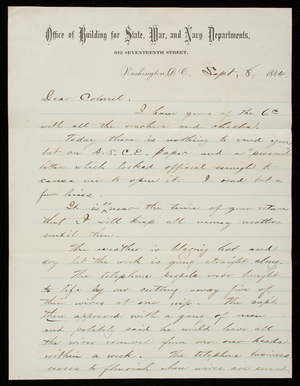 Office of Building for State, War, and Navy Departments,
612 SEVENTEENTH STREET,
Washington, D.C., Sept. 8, 1882
Dear Colonel.
I have yours of the 6th
with all the vouchers and checks.
Today there is nothing to send you
but an A.S.C.E. paper and a personal
letter which looked official enough to
cause me to open it. I read but a
few lines.
It is so near the time of your return
that I will keep all money matters
until then.
The weather is blazing hot and
dry but the work is going straight along.
The telephone people were brought
to life by our cutting away five of
their wires at one nip. The Supt
then appeared with a gang of men
and politely said he would have all
the wires removed from our heads
within a week. The telephone business
ceases to flourish when wires are